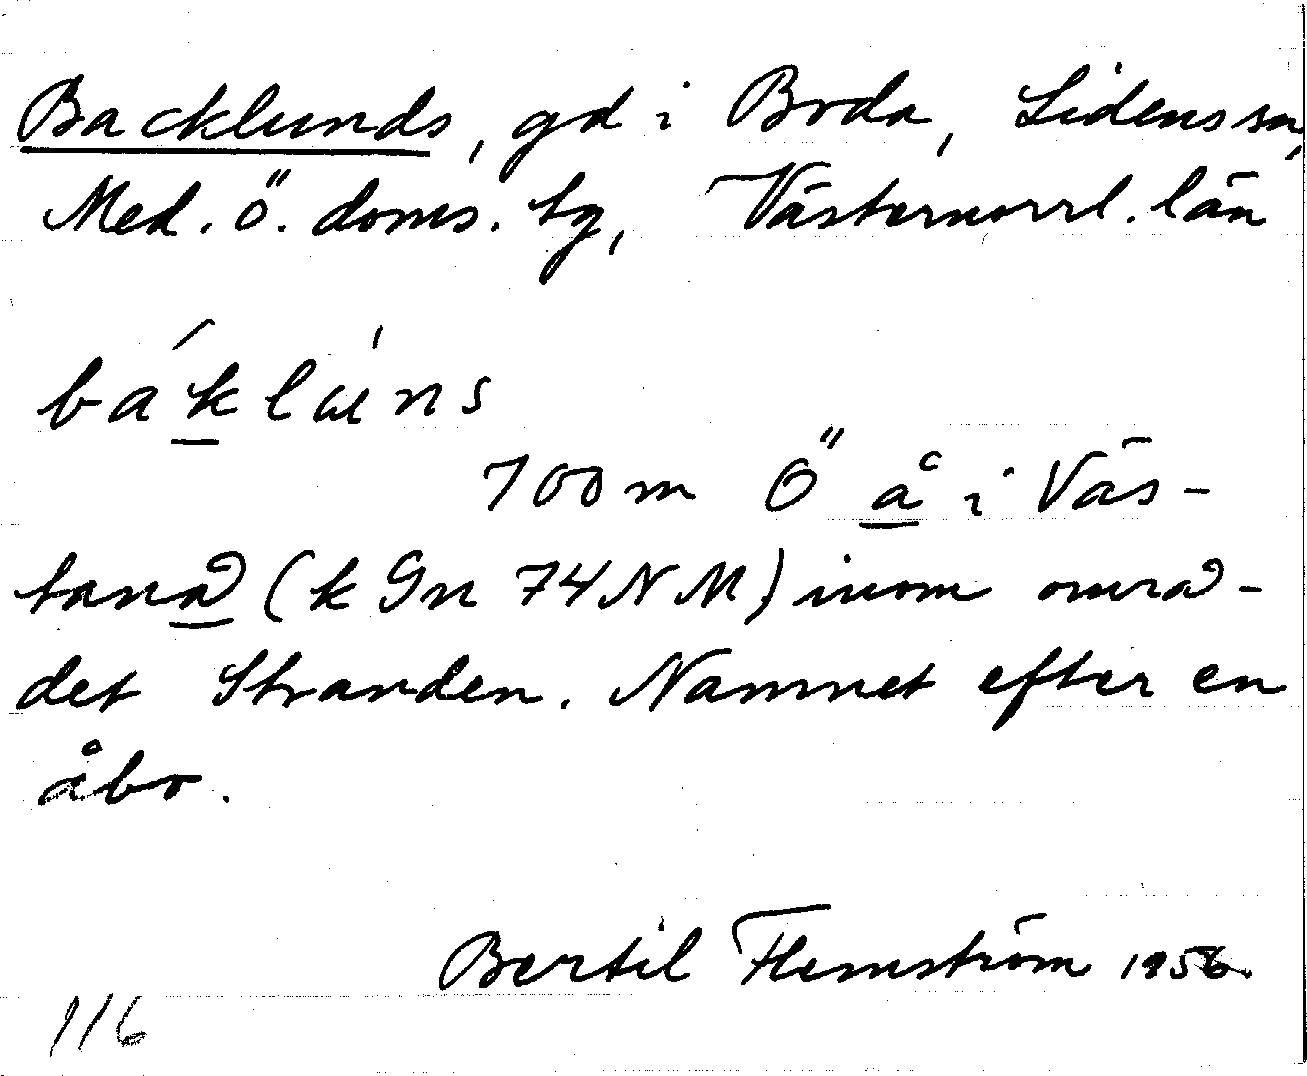 Backlunds, gd i Boda, Lidens sn,
Med. ö. doms. tg, Västernorrl. län
bákláns
700 m Ö å i Väs-
tanå (k Gn 74 N M) inom områ-
det Stranden. Namnet efter en
åbo.
Bertil Flemström 1956.
116